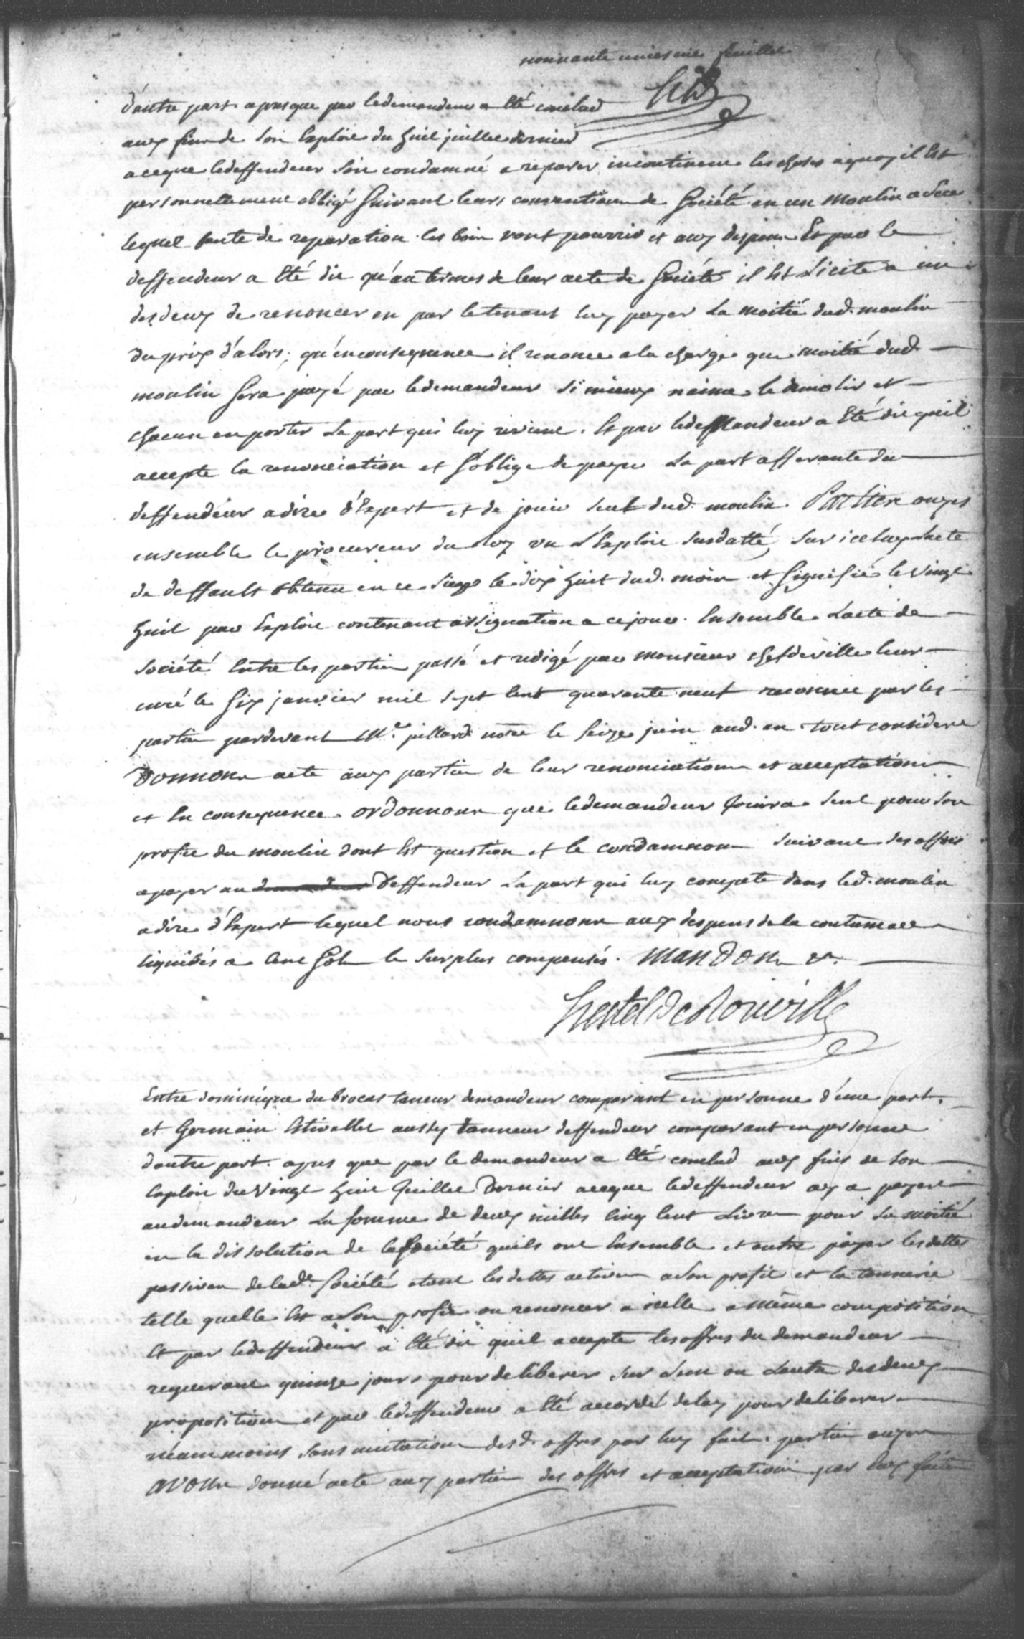 nonnante uniesme feuillet
d'autre part apres que par le demandeur a Eté conclud
aux fins de son Exploit du huit juillet dernier
a ceque le deffendeur soit condamné a reparer incontinent les choses a quoy il Est
personnellement obligé suivant leurs convention de société en un moulin a scie
lequel faute de reparation les bois vont pourrir et aux despens Et par le
deffendeur a Eté dit qu'au termes de leur acte de société il Est Licite a un
des deux de renoncer en par le tenant luy payer La moitié dud. moulin
du prix d'alors, qu'en consequence il renonce a la charge que moitié dud.
moulin sera payé par le demandeur si mieux n'aime le demolir et
chacun emporter la part qui luy revient. Et par le demandeur a Eté dit qu'il
accepte la renonciation et s'oblige de payer La part afferante du
deffendeur a dire d'Expert et de jouir seul dud. moulin. Parties ouyes
ensemble le procureur du Roy vu L'Exploit susdatté, sur iceluy l'acte
de deffault obtenu en ce siege le dix huit dud. mois et signifié le vingt
huit par Exploit contenant assignation a ce jour. Ensemble L'acte de
société Entre les parties passé et redigé par monsieur chefdeville leur
curé le six janvier mil sept Cent quarante neuf reconnue par les
parties pardevant Me. pillard nore le seize juin aud. an tout consideré
DONNONS acte aux parties de leur renonciation et acceptation
et En consequence ORDONNONS que le demandeur jouira seul pour son
profit du moulin dont Est question et le condamnons suivant ses offres
a payer au deffendeur La part qui luy compete dans led. moulin
a dire d'Expert lequel nous condamnons aux despens de la contumace
liquidés a Cent sols le surplus compensés. MANDONS &a.
hertel De Rouville
Entre dominique du brocas taneur demandeur comparant en personne d'une part,
et Germain Etivallet aussy tanneur deffendeur comparant en personne
d'autre part. apres que par le demandeur a Eté conclud aux fins de son
Exploit du vingt huit Juillet dernier a ceque le deffendeur ay a payer
au demandeur La somme de deux milles cinq cent Livres pour sa moitié
en la dissolution de la société quils ont Ensemble et outre payer les dettes
passives de lade. société etant les dettes actives a son profit et la tannerie
telle quelle Est a son profit ou renoncer a icelle a même composition
Et par le deffendeur a Eté dit quil accepte les offres du demandeur
requerant quinze jours pour deliberer sur L'une ou L'autre des deux
proposition et par le deffendeur a Eté accordé delay pour deliberer
neanmoins sans mutation desd. offres par luy faite. parties ouyes
AVONS donné acte aux parties des offres et acceptation par Eux faite